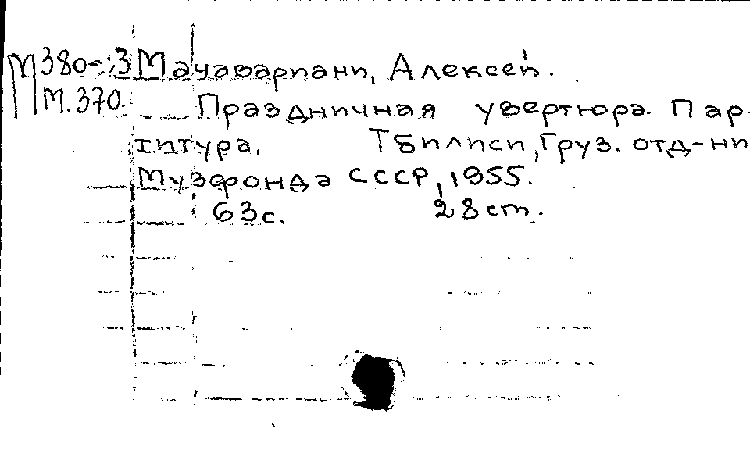 М380-:3 Мачавариани, Алексей.
М.370. Праздничная увертюра. Пар-
титура. Тбилиси, Груз. отд-ни
Музфонда СССР, 1955.
63с. 28cm.